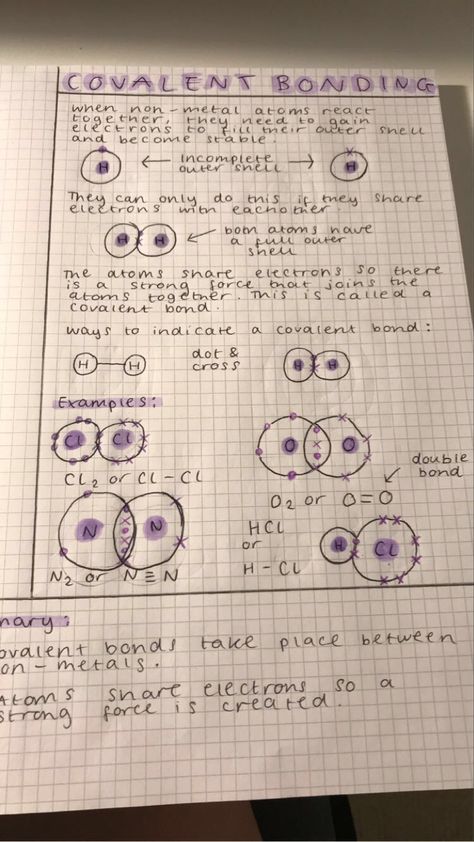 COVALENT BONDING
when non-metal atoms react
together, they need to gain
electrons to fill their outer shell
and become stable.
H ← incomplete → H
outer shell
They can only do this if they share
electrons with eachother.
H H ← both atoms have
a full outer
shell
The atoms share electrons so there
is a strong force that joins the
atoms together. This is called a
covalent bond.
ways to indicate a covalent bond:
H—H dot & H H
cross
Examples:
Cl Cl
Cl2 or Cl – Cl
O O
double
bond
O2 or O=O
N N
N2 or N≡N
HCl
or
H – Cl
H Cl
mary:
ovalent bonds take place between
on-metals.
Atoms share electrons so a
strong force is created.